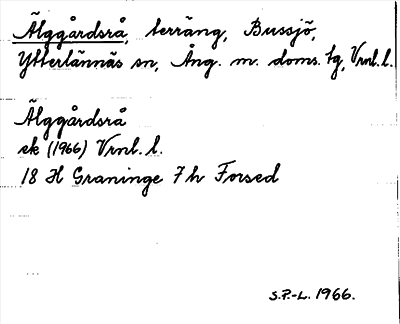 Älggårdsrå, terräng, Bussjö,
Ytterlännäs sn, Ång. m. doms. tg, Vrnl. l.
Älggårdsrå
ek (1966) Vrnl. l.
18 H Graninge 7 h Forsed
S.P.-L. 1966.